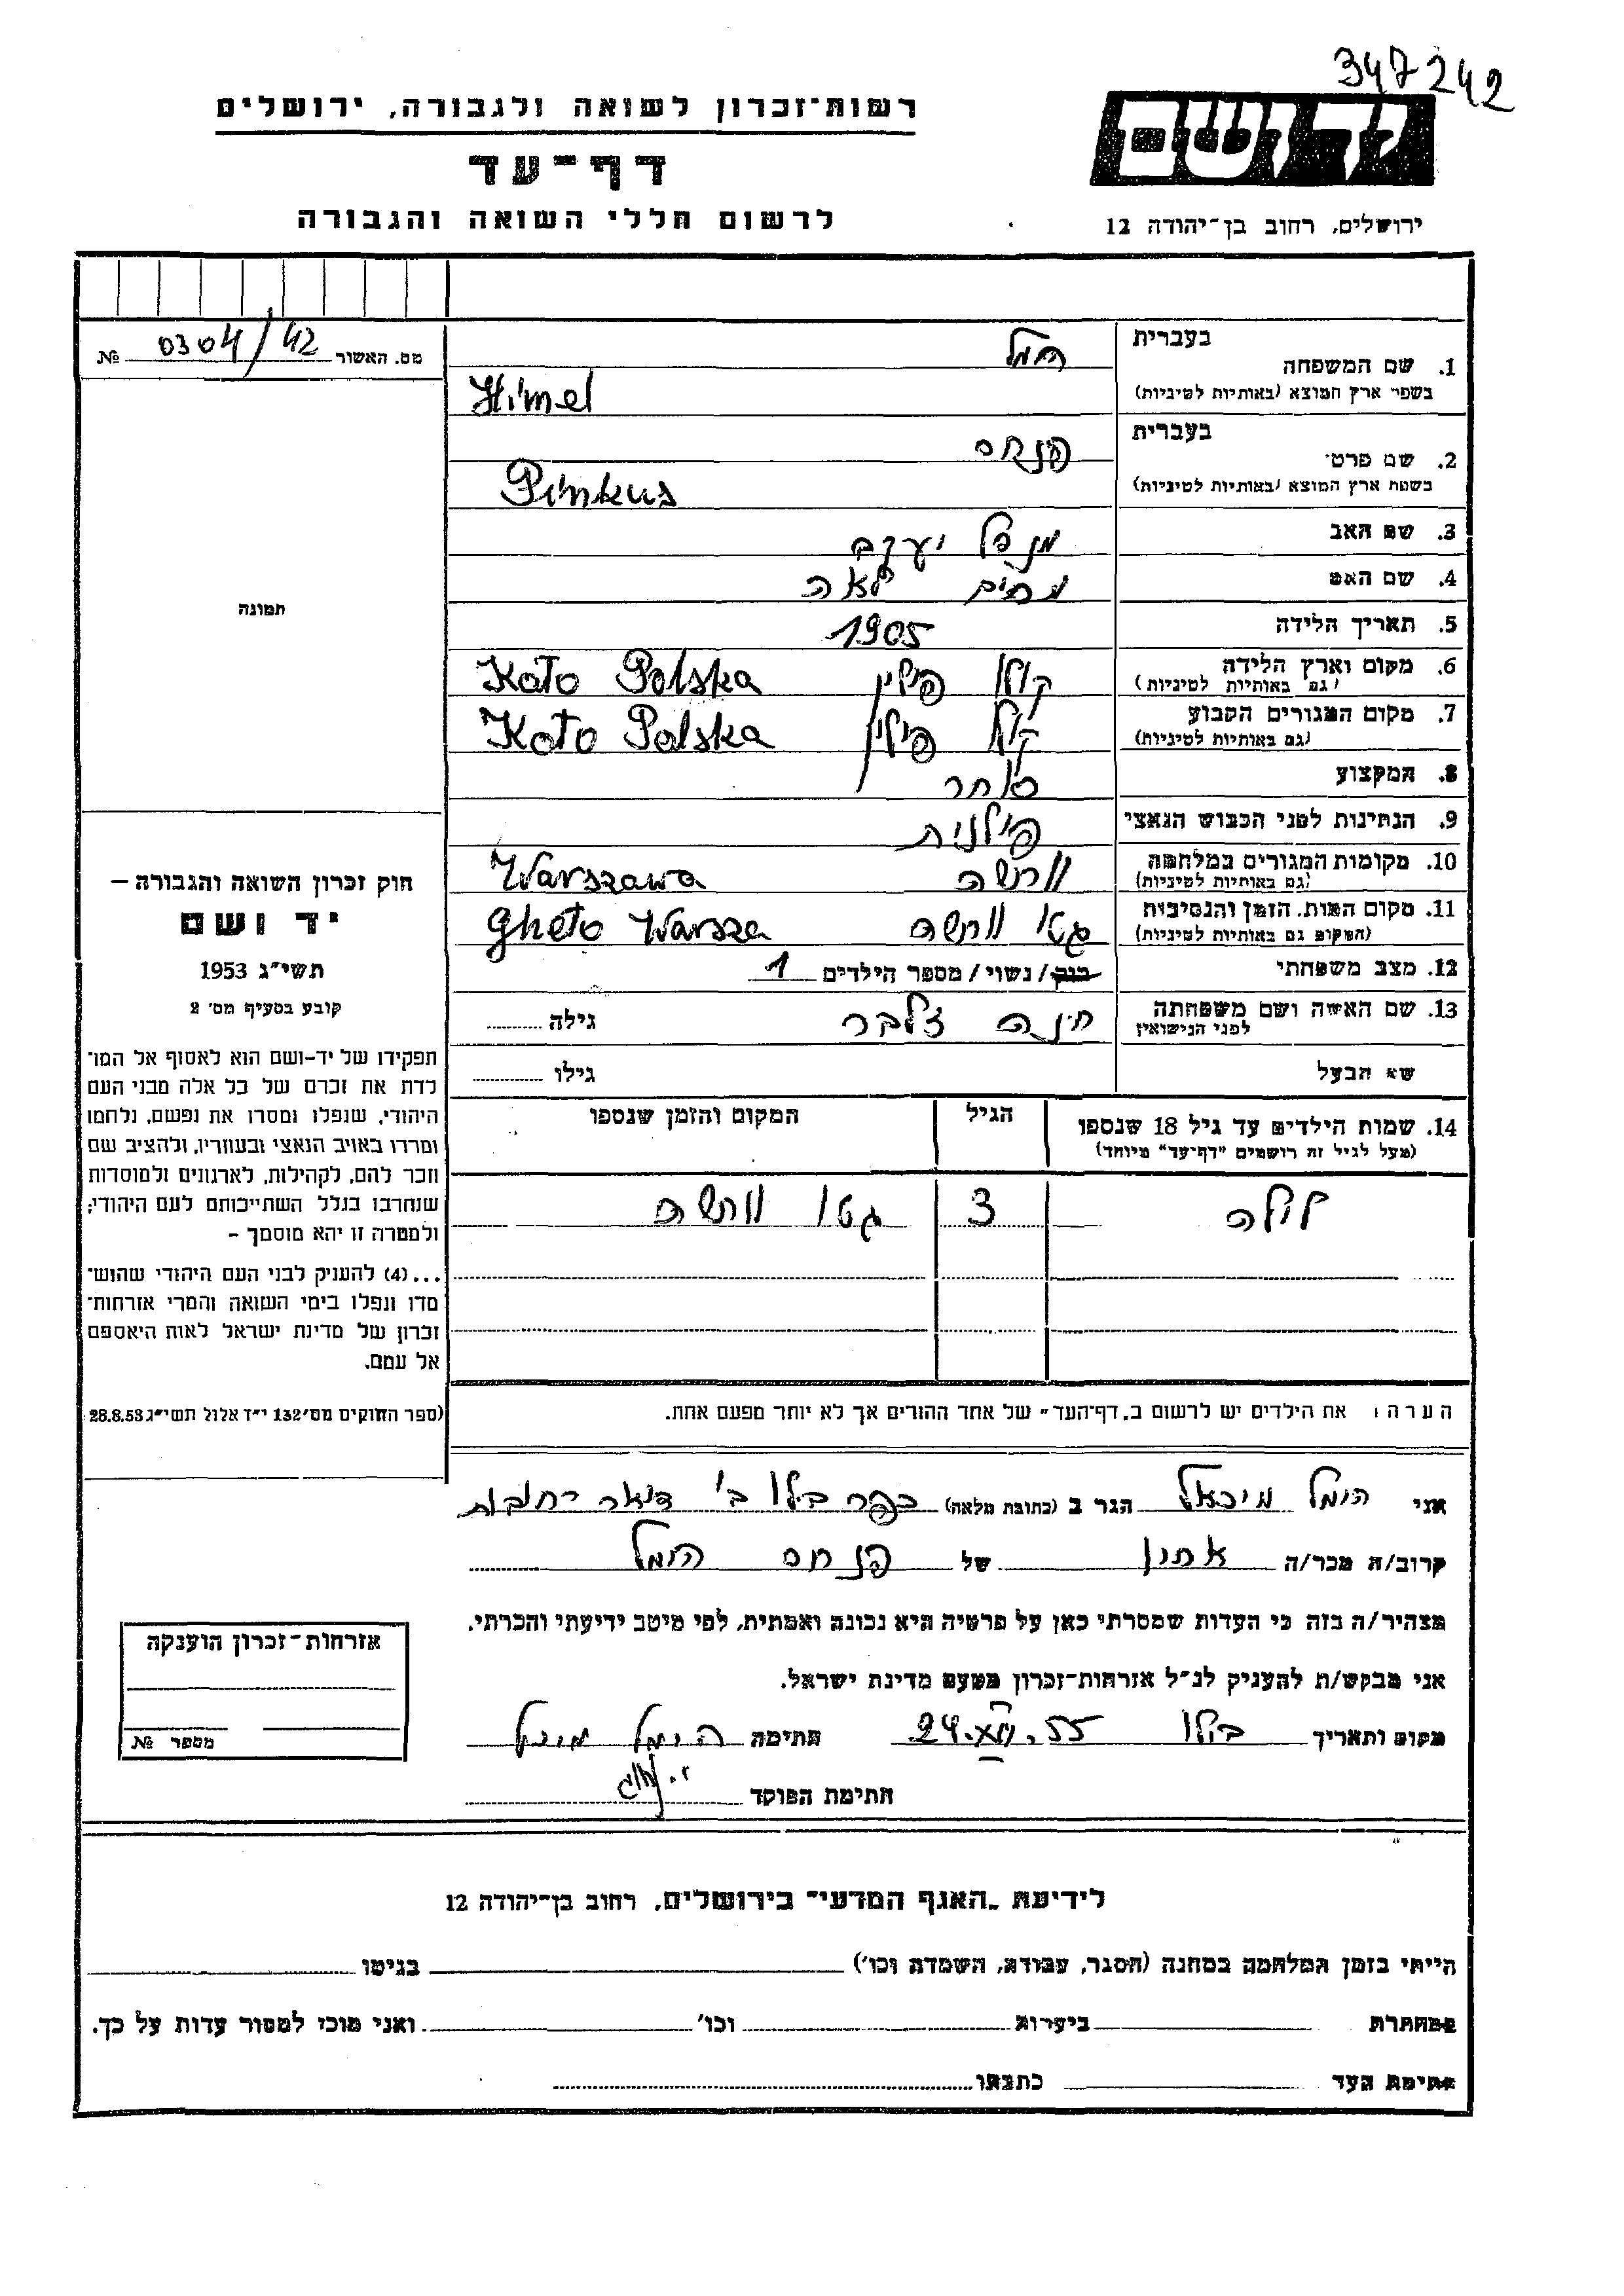 347242
יד ושם
רשות-זכרון לשואה ולגבורה, ירושלים
דף-עד
לרשום חללי השואה והגבורה
ירושלים, רחוב בן-יהודה 12
מס. האשור 0304/42 №
1. שם המשפחה
בעברית
הימל
בשפת ארץ המוצא (באותיות לטיניות)
Himel
2. שם פרטי
בעברית
פנחס
בשפת ארץ המוצא (באותיות לטיניות)
Pinkus
3. שם האב
מנדל יעקב
4. שם האם
מרים לאה
5. תאריך הלידה
1905
6. מקום וארץ הלידה
(גם באותיות לטיניות)
קולו פולין Koto Polska
7. מקום המגורים הקבוע
(גם באותיות לטיניות)
קולו פולין Koto Polska
8. המקצוע
סוחר
9. הנתינות לפני הכבוש הנאצי
פולנית
10. מקומות המגורים במלחמה
(גם באותיות לטיניות)
וורשה Warszawa
11. מקום המות, הזמן והנסיבות
(המקום גם באותיות לטיניות)
גטו וורשה Gheto Warsza
12. מצב משפחתי
רווק/נשוי/מספר הילדים 1
13. שם האשה ושם משפחתה
לפני הנישואין
חנה זילבר
גילה
שם הבעל
גילו
14. שמות הילדים עד גיל 18 שנספו
(מעל לגיל זה רושמים "דף-עד" מיוחד)
הגיל
המקום והזמן שנספו
לולה 3 גטו וורשה
הערה: את הילדים יש לרשום ב"דף-העד" של אחד ההורים אך לא יותר מפעם אחת.
תמונה
חוק זכרון השואה והגבורה –
יד ושם
תשי"ג 1953
קובע בסעיף מס' 2
תפקידו של יד-ושם הוא לאסוף אל המו־
לדת את זכרם של כל אלה מבני העם
היהודי, שנפלו ומסרו את נפשם, נלחמו
ומרדו באויב הנאצי ובעוזריו, ולהציב שם
וזכר להם, לקהילות, לארגונים ולמוסדות
שנחרבו בגלל השתייכותם לעם היהודי;
ולמטרה זו יהא מוסמך –
...(4) להעניק לבני העם היהודי שהוש־
מדו ונפלו בימי השואה והמרי אזרחות־
זכרון של מדינת ישראל לאות היאספם
אל עמם.
(ספר החוקים מס' 132 י"ז אלול תשי"ג 28.8.53)
אני הימל מיכאל הגר ב (כתובת מלאה) כפר בילו ב' דואר רחובות
קרוב/ה מכר/ה אחיו של פנחס הימל
מצהיר/ה בזה כי העדות שמסרתי כאן על פרטיה היא נכונה ואמתית, לפי מיטב ידיעתי והכרתי.
אני מבקש/ת להעניק לנ"ל אזרחות-זכרון מטעם מדינת ישראל.
מקום ותאריך בילו 55 חתימה הימל מיכאל
חתימת הפוקד
אזרחות-זכרון הוענקה
מספר №
לידיעת "האגף המדעי" בירושלים, רחוב בן-יהודה 12
הייתי בזמן המלחמה במחנה (הסגר, עבודה, השמדה וכו') בגיטו
במחתרת ביערות וכו' ואני מוכן למסור עדות על כך.
חתימת העד כתבתו